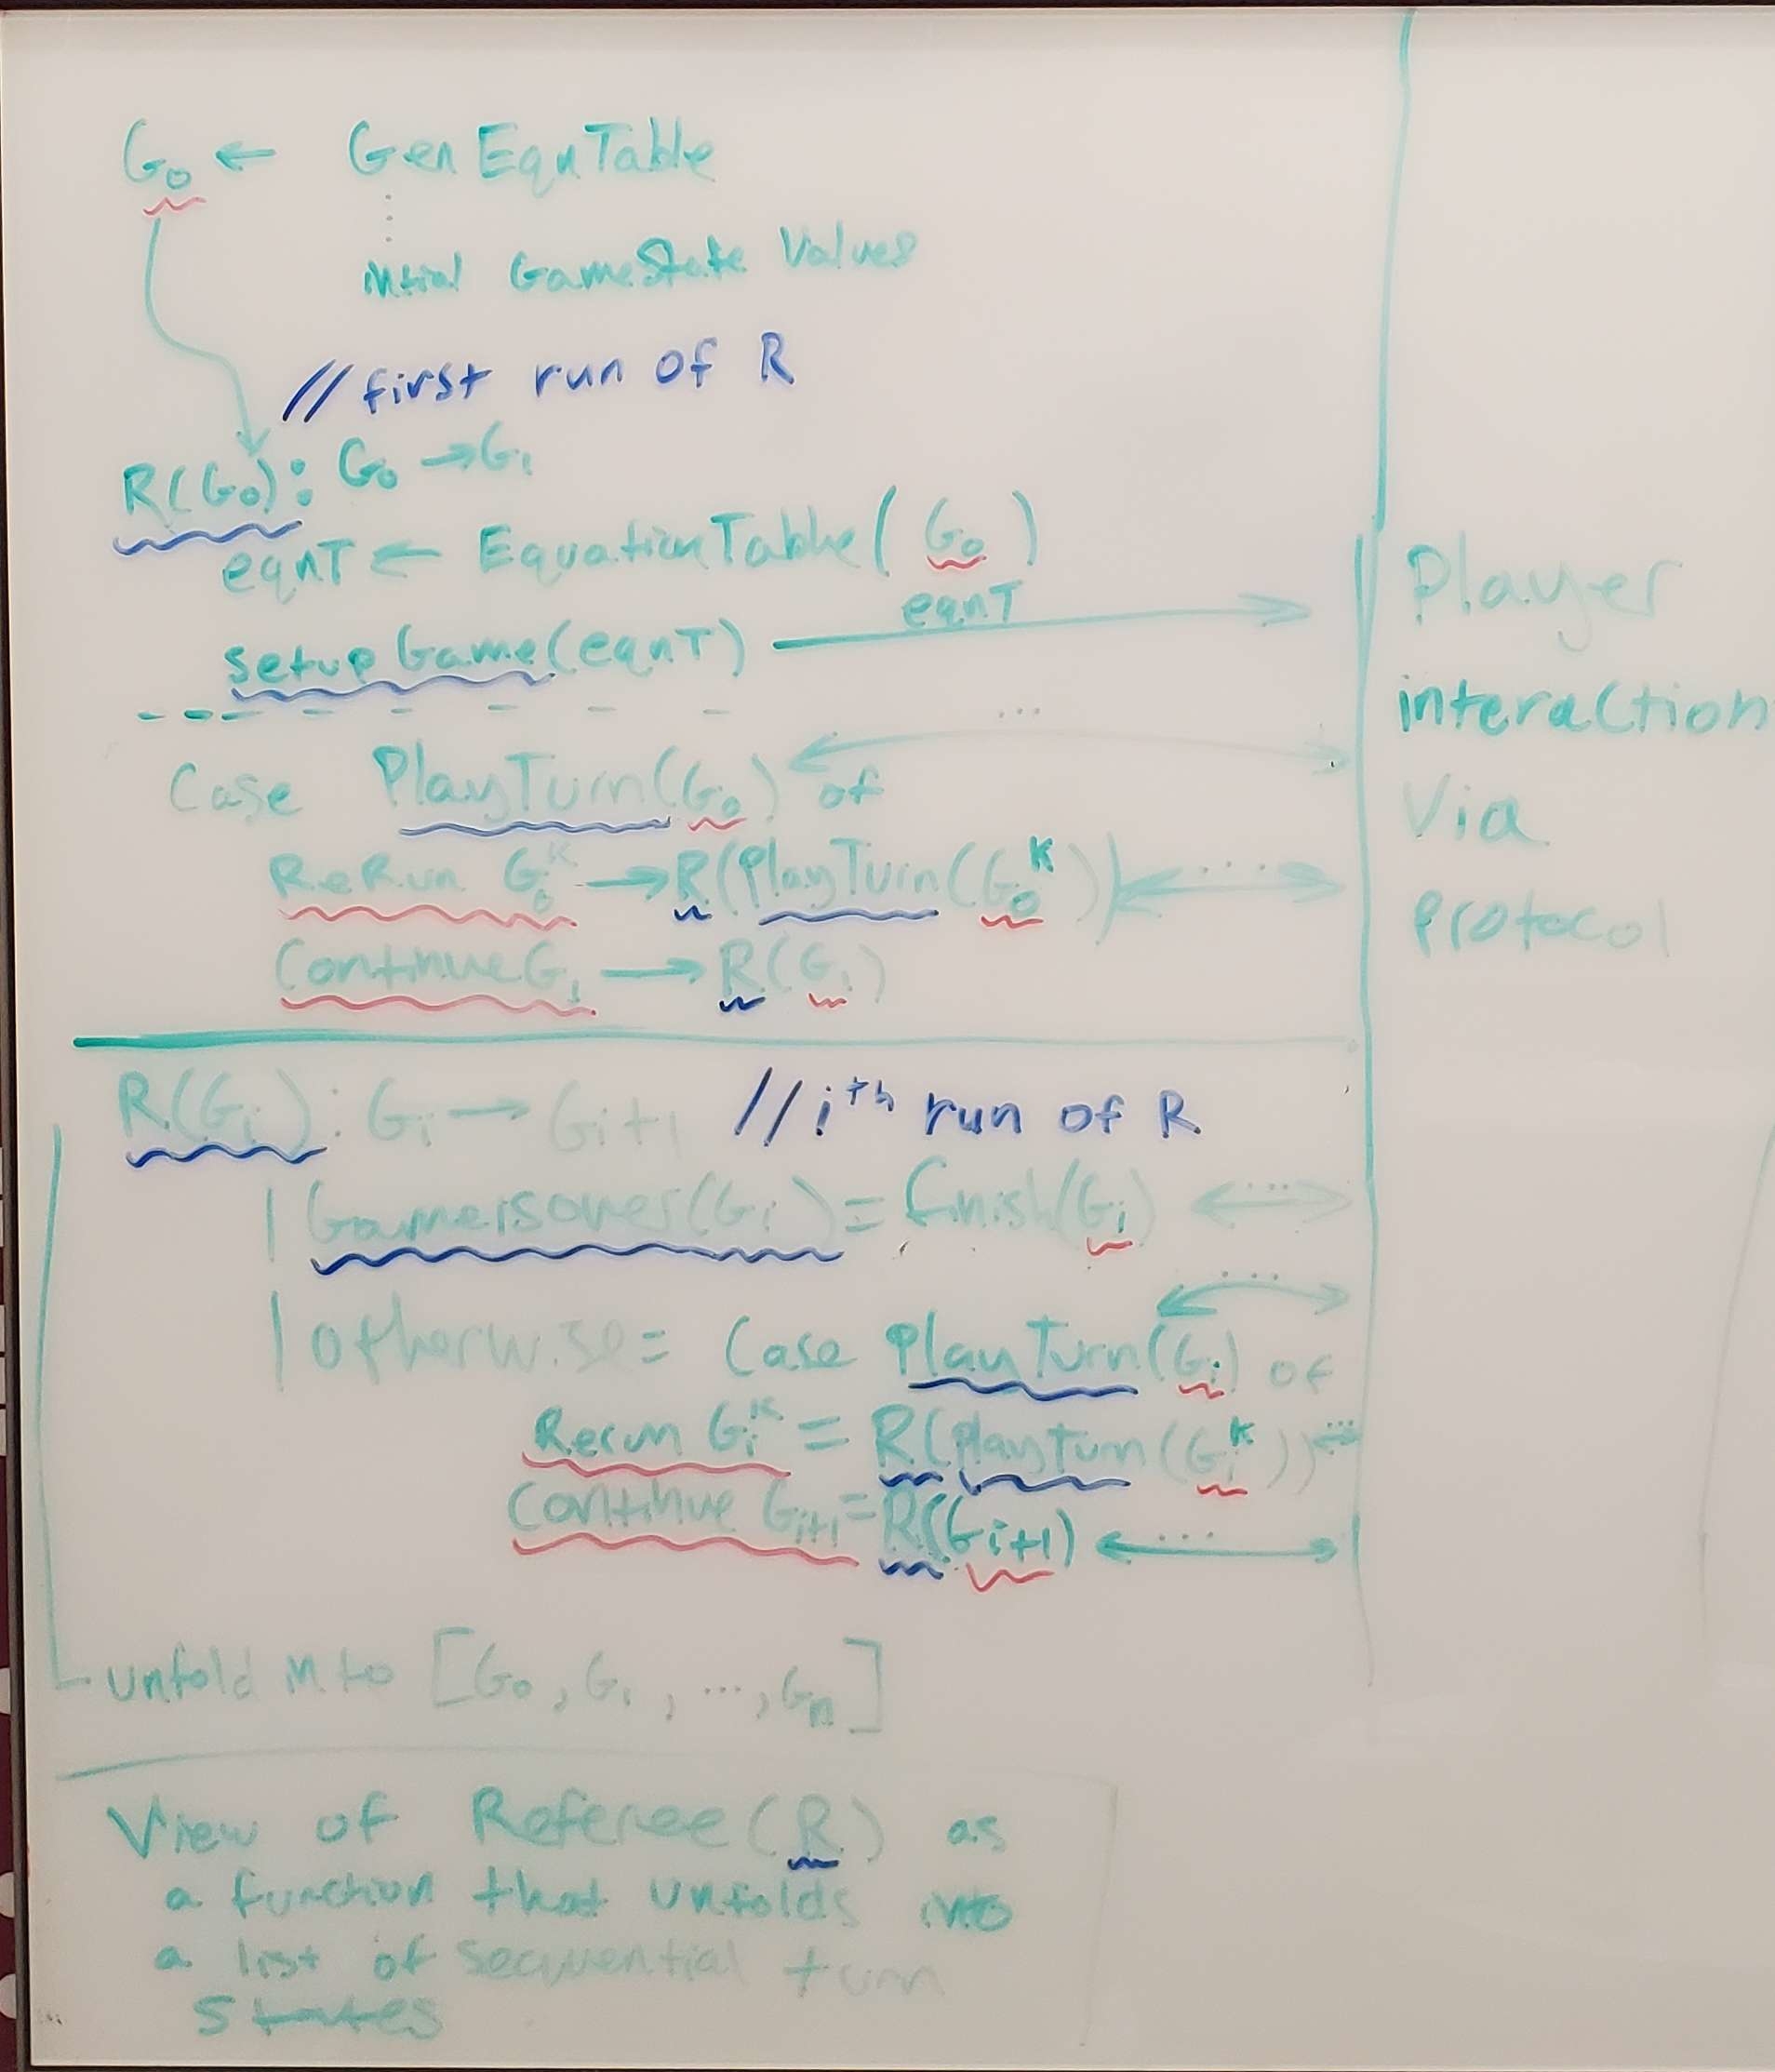 G₀ ← GenEqnTable
⋮
initial GameState Values
// first run of R
R(G₀): G₀ → G₁
eqnT ← EquationTable(G₀)
setupGame(eqnT) → eqnT
- - - - - - - -
Case PlayTurn(G₀) of ...
ReRun G₀ᴷ → R(PlayTurn(G₀ᴷ)) ...
Continue G₁ → R(G₁)
Player
interaction
Via
Protocol
R(Gᵢ): Gᵢ → Gᵢ₊₁ // iᵗʰ run of R
| GameisOver(Gᵢ) = finish(Gᵢ) ...
| otherwise = Case PlayTurn(Gᵢ) of ...
Rerun Gᵢᴷ = R(PlayTurn(Gᵢᴷ)) ...
Continue Gᵢ₊₁ = R(Gᵢ₊₁) ...
unfold into [G₀, G₁, ..., Gₙ]
View of Referee (R) as
a function that unfolds into
a list of sequential turn
states